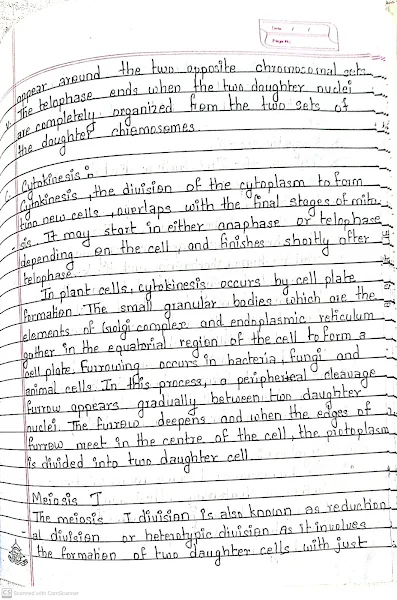 appear around the two opposite chromosomal sets.
The telophase ends when the two daughter nuclei
are completely organized from the two sets of
the daughter chromosomes.
Cytokinesis :
Cytokinesis, the division of the cytoplasm to form
two new cells, overlaps with the final stages of mito
- sis. It may start in either anaphase or telophase
depending on the cell and finishes shortly after
telophase.
In plant cells, cytokinesis occurs by cell plate
formation. The small granular bodies which are the
elements of Golgi complex and endoplasmic reticulum
gather in the equatorial region of the cell to form a
cell plate. Furrowing occurs in bacteria, fungi and
animal cells. In this process, a peripheral cleavage
furrow appears gradually between two daughter
nuclei. The furrow deepens and when the edges of
furrow meet in the centre of the cell, the protoplasm
is divided into two daughter cell
Meiosis I
The meiosis I division is also known as reduction
- al division or heterotypic division as it involves
the formation of two daughter cells with just
CS Scanned with CamScanner